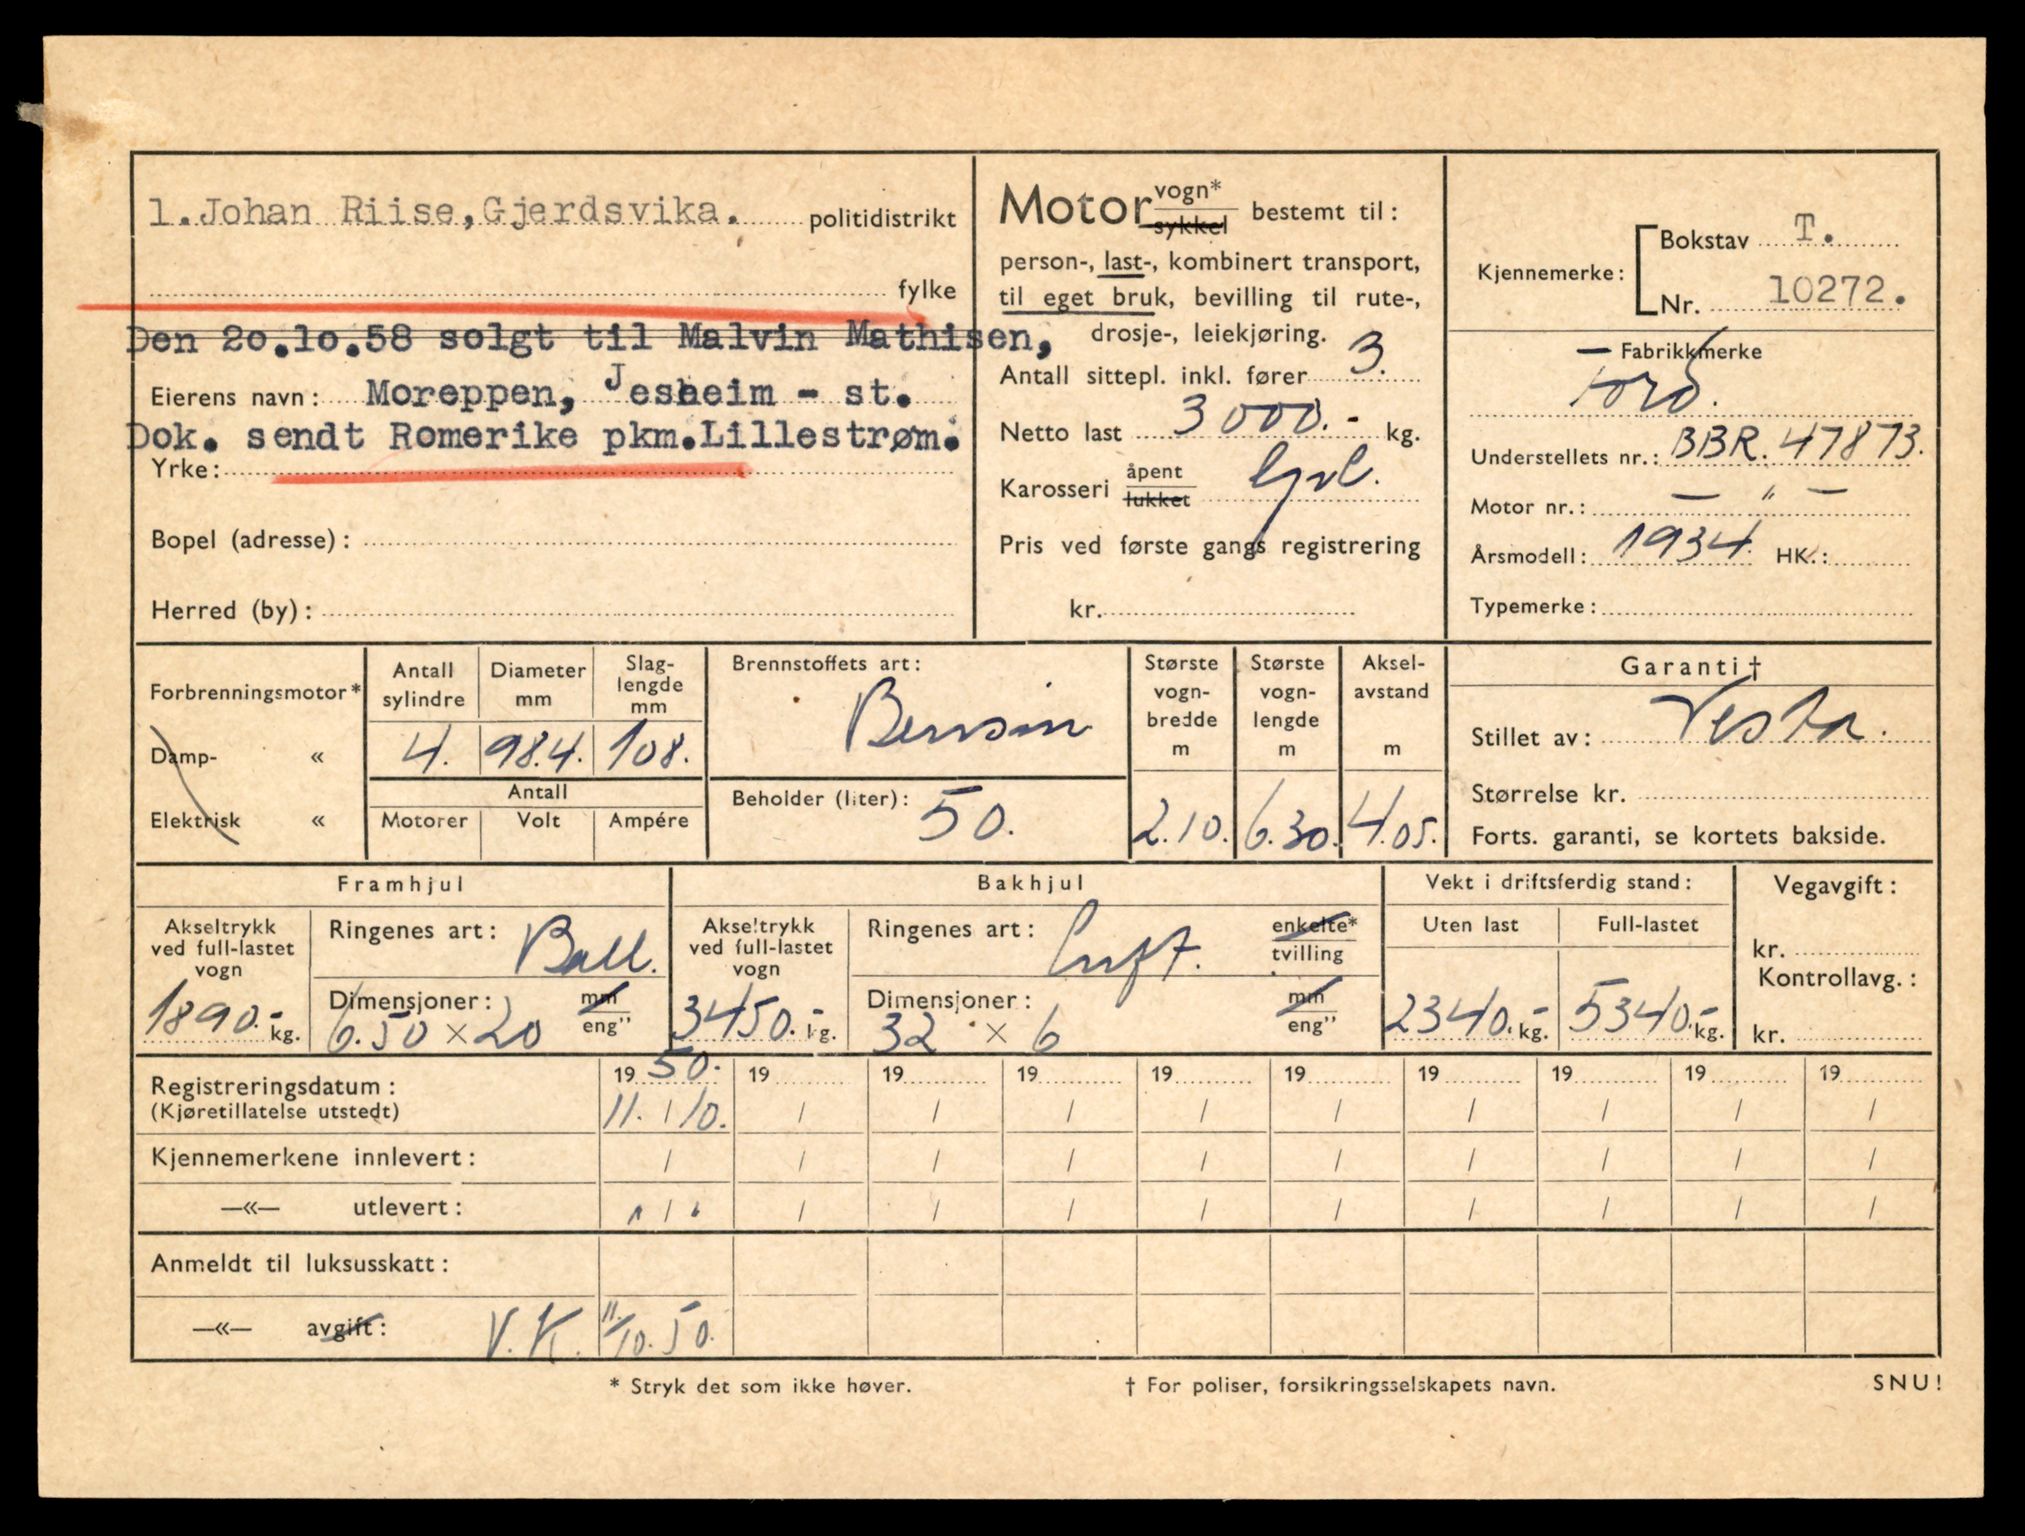 1. Johan Riise, Gjerdsvika. politidistrikt
fylke
Den 20.10.58 solgt til Malvin Mathisen,
Eierens navn: Moreppen, Jesheim - st.
Dok. sendt Romerike pkm. Lillestrøm.
Yrke:
Bopel (adresse):
Herred (by):
Motor vogn* sykkel bestemt til:
person-, last-, kombinert transport,
til eget bruk, bevilling til rute-,
drosje-, leiekjøring.
Antall sittepl. inkl. fører 3.
Netto last 3000.- kg.
Karosseri åpent lukket
Pris ved første gangs registrering
kr.
Kjennemerke: Bokstav T.
Nr. 10272.
Fabrikkmerke
Ford.
Understellets nr.: BBR. 47873.
Motor nr.: — " —
Årsmodell: 1934. HK.:
Typemerke:
Forbrenningsmotor*
Damp- «
Elektrisk «
Antall sylindre
4.
Diameter mm
98.4.
Slaglengde mm
108.
Antall
Motorer Volt Ampére
Brennstoffets art:
Bensin
Beholder (liter): 50.
Største vogn-bredde m
2.10.
Største vogn-lengde m
6.30.
Aksel-avstand m
4.05.
Garanti†
Stillet av: Vesta.
Størrelse kr.
Forts. garanti, se kortets bakside.
Framhjul
Akseltrykk ved full-lastet vogn
1890.- kg.
Ringenes art: Ball.
Dimensjoner: mm eng"
6.50 x 20
Bakhjul
Akseltrykk ved full-lastet vogn
3450.- kg.
Ringenes art: Luft. enkelte* tvilling
Dimensjoner: mm eng"
32 x 6
Vekt i driftsferdig stand:
Uten last Full-lastet
2340.- kg. 5340.- kg.
Vegavgift:
kr.
Kontrollavg.:
kr.
Registreringsdatum: 19 50. 19 19 19 19 19 19 19 19 19
(Kjøretillatelse utstedt) 11. / 10. / / / / / / / / /
Kjennemerkene innlevert: / / / / / / / / / /
—«— utlevert: / / / / / / / / / /
Anmeldt til luksusskatt:
—«— avgift: V.K. 11/10.50.
* Stryk det som ikke høver. † For poliser, forsikringsselskapets navn. SNU!